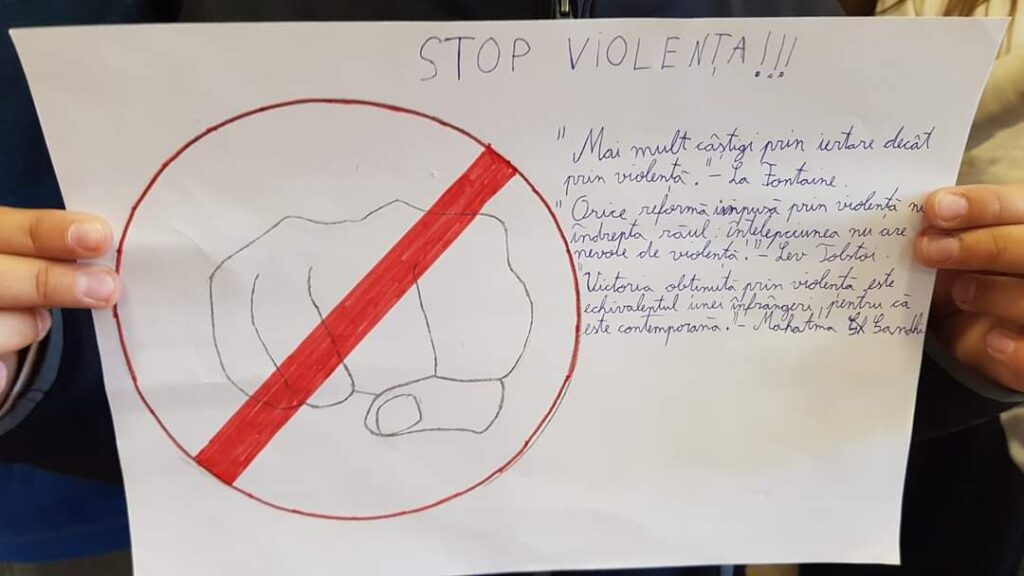 STOP VIOLENȚA!!!
"Mai mult câștigi prin iertare decât
prin violență."- La Fontaine.
"Orice reformă impusă prin violență nu
îndrepta răul: înțelepciunea nu are
nevoie de violență."- Lev Tolstoi.
"Victoria obtinută prin violență este
echivalentul unei înfrângeri, pentru că
este contemporană."- Mahatma Gandhi